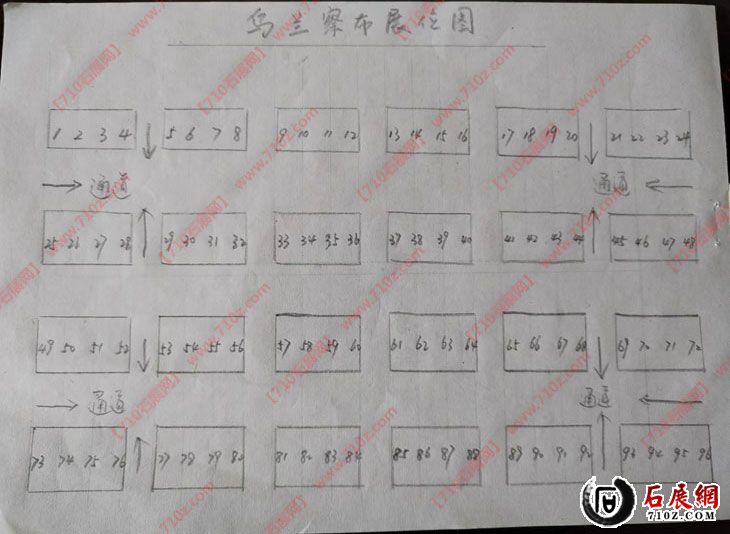 乌兰察布展位图
1 2 3 4 5 6 7 8 9 10 11 12 13 14 15 16 17 18 19 20 21 22 23 24
通道 通道
25 26 27 28 29 30 31 32 33 34 35 36 37 38 39 40 41 42 43 44 45 46 47 48
49 50 51 52 53 54 55 56 57 58 59 60 61 62 63 64 65 66 67 68 69 70 71 72
通道 通道
73 74 75 76 77 78 79 80 81 82 83 84 85 86 87 88 89 90 91 92 93 94 95 96
【710石展网】 www.710z.com
石展網
710Z.COM